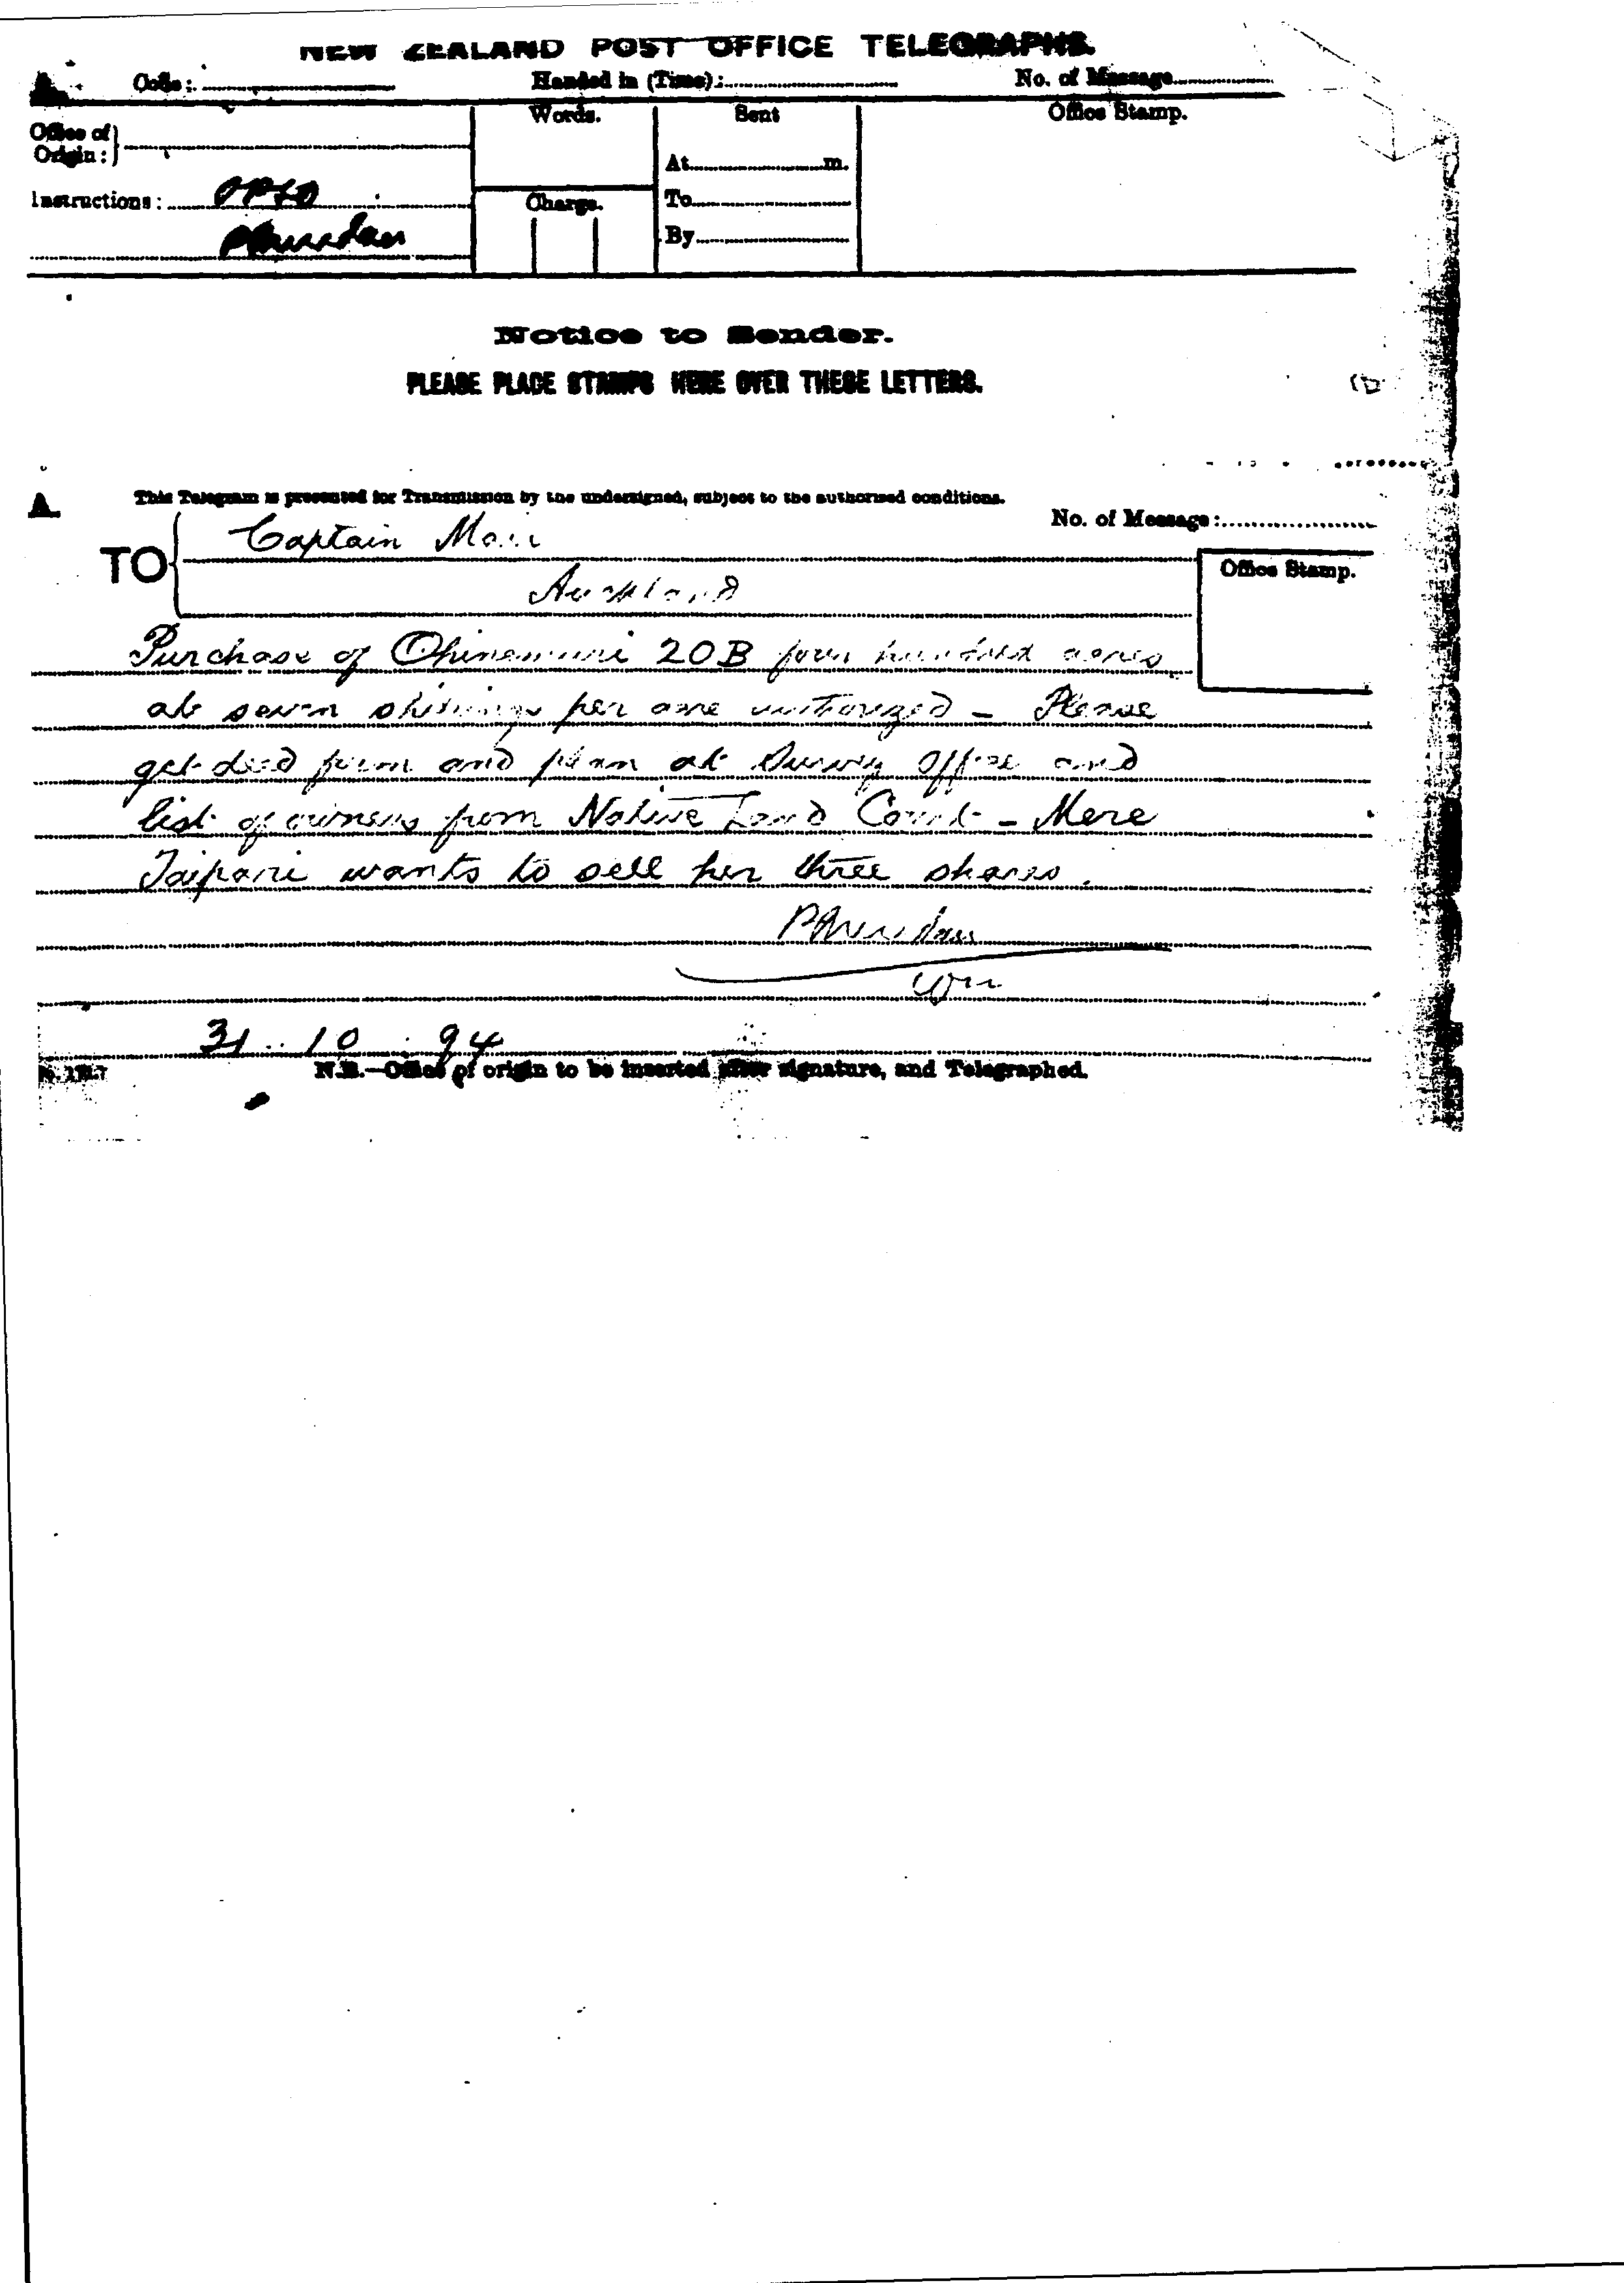 NEW ZEALAND POST OFFICE TELEGRAPHS.
A. Code: Handed in (Time): No. of Message
Office of Origin: Words. Sent Office Stamp.
At m.
Instructions: OPSO Charge. To
PSheridan By
Notice to Sender.
PLEASE PLACE STAMPS HERE OVER THESE LETTERS.
A. This Telegram is presented for Transmission by the undersigned, subject to the authorised conditions.
No. of Message:
TO Captain Mair
Office Stamp.
Auckland
Purchase of Ohinemuri 20B four hundred acres
at seven shillings per acre authorized – Please
get deed form and plan at Survey Office and
list of owners from Native Land Court – Mere
Taipari wants to sell her three shares.
PSheridan
31 . 10 . 94
N.B.—Office of origin to be inserted after signature, and Telegraphed.